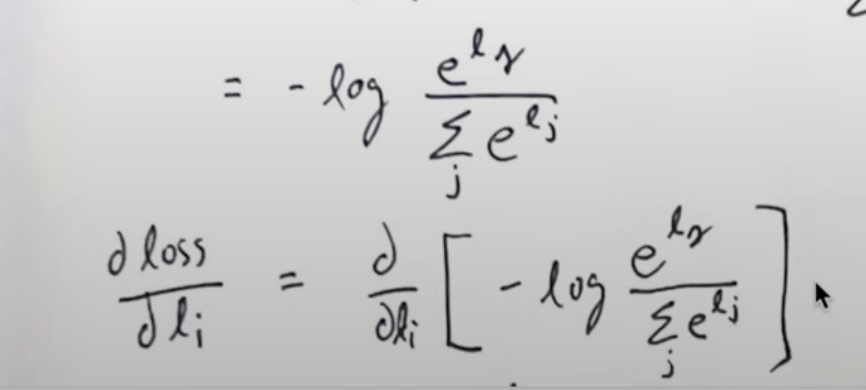 = - log e^{l_y} / Σ_j e^{l_j}
∂ loss / ∂ l_i = ∂ / ∂l_i [ - log e^{l_y} / Σ_j e^{l_j} ]